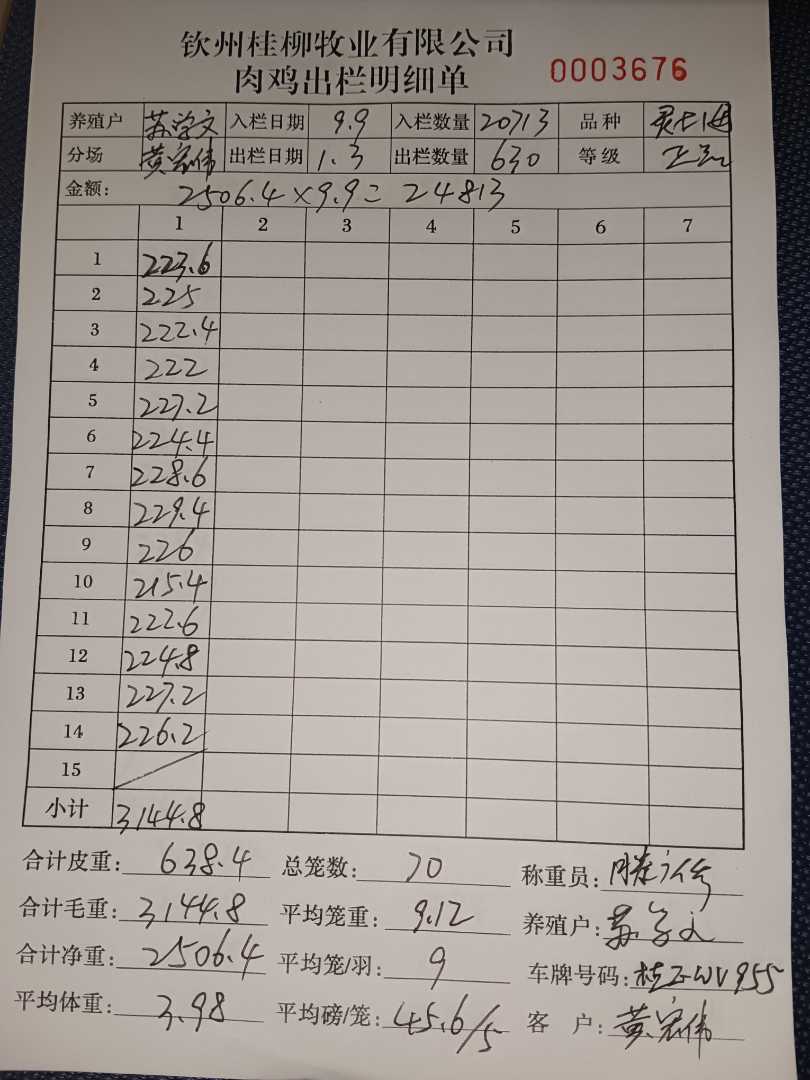 钦州桂柳牧业有限公司
肉鸡出栏明细单 0003676
养殖户 苏学文 入栏日期 9.9 入栏数量 20713 品种
分场 黄宏伟 出栏日期 1.3 出栏数量 630 等级 正品
金额: 2506.4×9.9= 24813
1 2 3 4 5 6 7
1 223.6
2 225
3 222.4
4 222
5 227.2
6 224.4
7 228.6
8 229.4
9 226
10 215.4
11 222.6
12 224.8
13 227.2
14 226.2
15
小计 3144.8
合计皮重: 638.4 总笼数: 70 称重员:
合计毛重: 3144.8 平均笼重: 9.12 养殖户: 苏学文
合计净重: 2506.4 平均笼/羽: 9 车牌号码:
平均体重: 3.98 平均磅/笼: 45.6/5 客 户: 黄宏伟